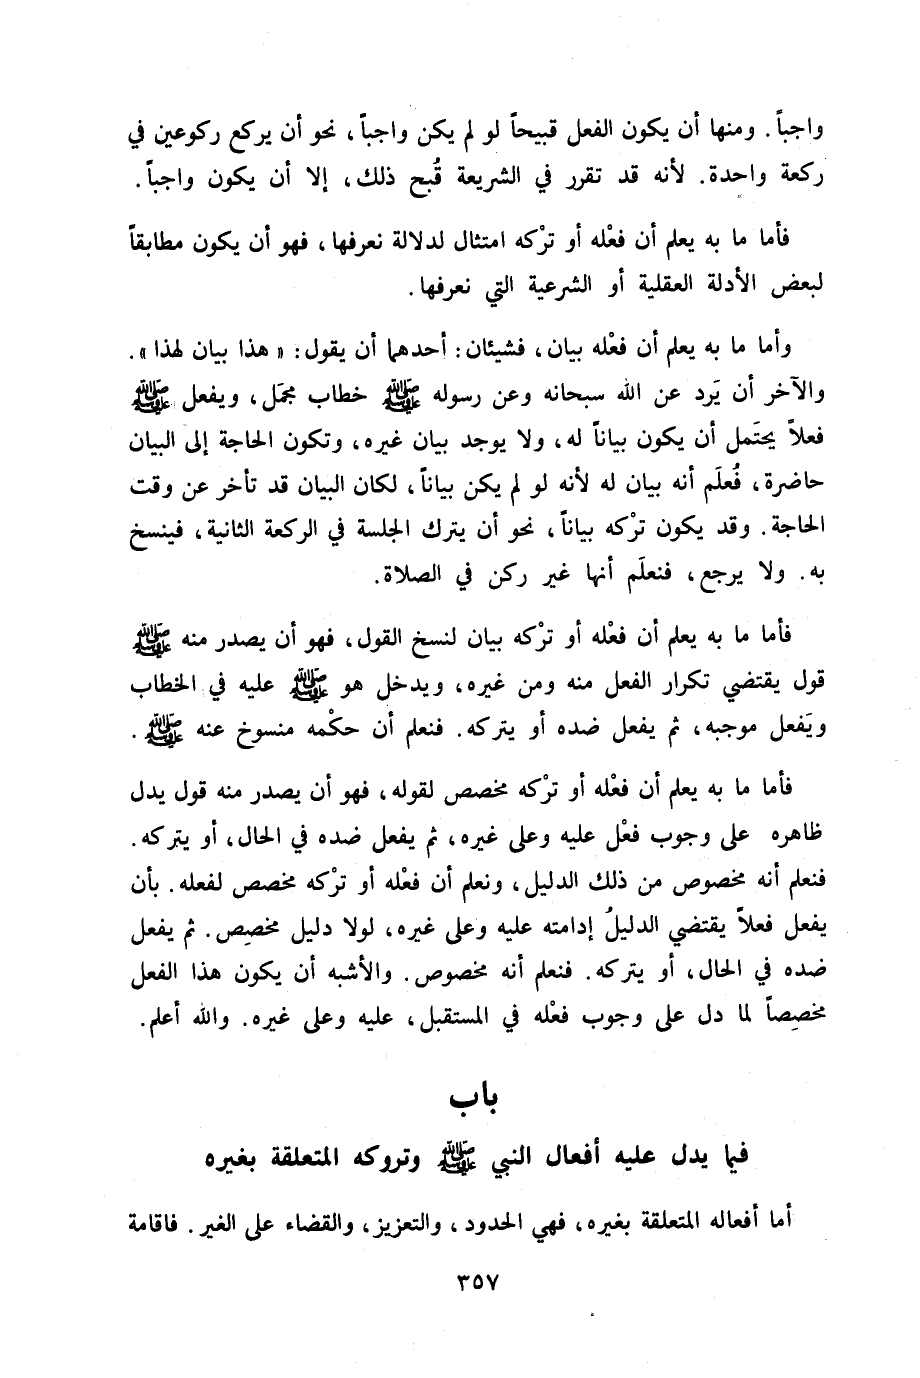 واجباً. ومنها أن يكون الفعل قبيحاً لو لم يكن واجباً، نحو أن يركع ركوعين في
ركعة واحدة. لأنه قد تقرر في الشريعة قُبح ذلك، إلا أن يكون واجباً.
فأما ما به يعلم أن فعْله أو ترْكه امتثال لدلالة نعرفها، فهو أن يكون مطابقاً
لبعض الأدلة العقلية أو الشرعية التي نعرفها.
وأما ما به يعلم أن فعْله بيان، فشيئان: أحدهما أن يقول: « هذا بيان لهذا ».
والآخر أن يَرد عن الله سبحانه وعن رسوله ﷺ خطاب مجمَل، ويفعل ﷺ
فعلاً يحتَمل أن يكون بياناً له، ولا يوجد بيان غيره، وتكون الحاجة إلى البيان
حاضرة، فُعلَم أنه بيان له لأنه لو لم يكن بياناً، لكان البيان قد تأخر عن وقت
الحاجة. وقد يكون ترْكه بياناً، نحو أن يترك الجلسة في الركعة الثانية، فينسخ
به. ولا يرجع، فنعلَم أنها غير ركن في الصلاة.
فأما ما به يعلم أن فعْله أو ترْكه بيان لنسخ القول، فهو أن يصدر منه ﷺ
قول يقتضي تكرار الفعل منه ومن غيره، ويدخل هو ﷺ عليه في الخطاب
ويَفعل موجبه، ثم يفعل ضده أو يتركه. فنعلم أن حكْمه منسوخ عنه ﷺ.
فأما ما به يعلم أن فعْله أو ترْكه مخصص لقوله، فهو أن يصدر منه قول يدل
ظاهره على وجوب فعْل عليه وعلى غيره، ثم يفعل ضده في الحال، أو يتركه.
فنعلم أنه مخصوص من ذلك الدليل، ونعلم أن فعْله أو ترْكه مخصص لفعله. بأن
يفعل فعلاً يقتضي الدليلُ إدامته عليه وعلى غيره، لولا دليل مخصِص. ثم يفعل
ضده في الحال، أو يتركه. فنعلم أنه مخصوص. والأشبه أن يكون هذا الفعل
مخصِصاً لما دل على وجوب فعْله في المستقبل، عليه وعلى غيره. والله أعلم.
باب
فيما يدل عليه أفعال النبي ﷺ وتروكه المتعلقة بغيره
أما أفعاله المتعلقة بغيره، فهي الحدود، والتعزيز، والقضاء على الغير. فاقامة
٣٥٧